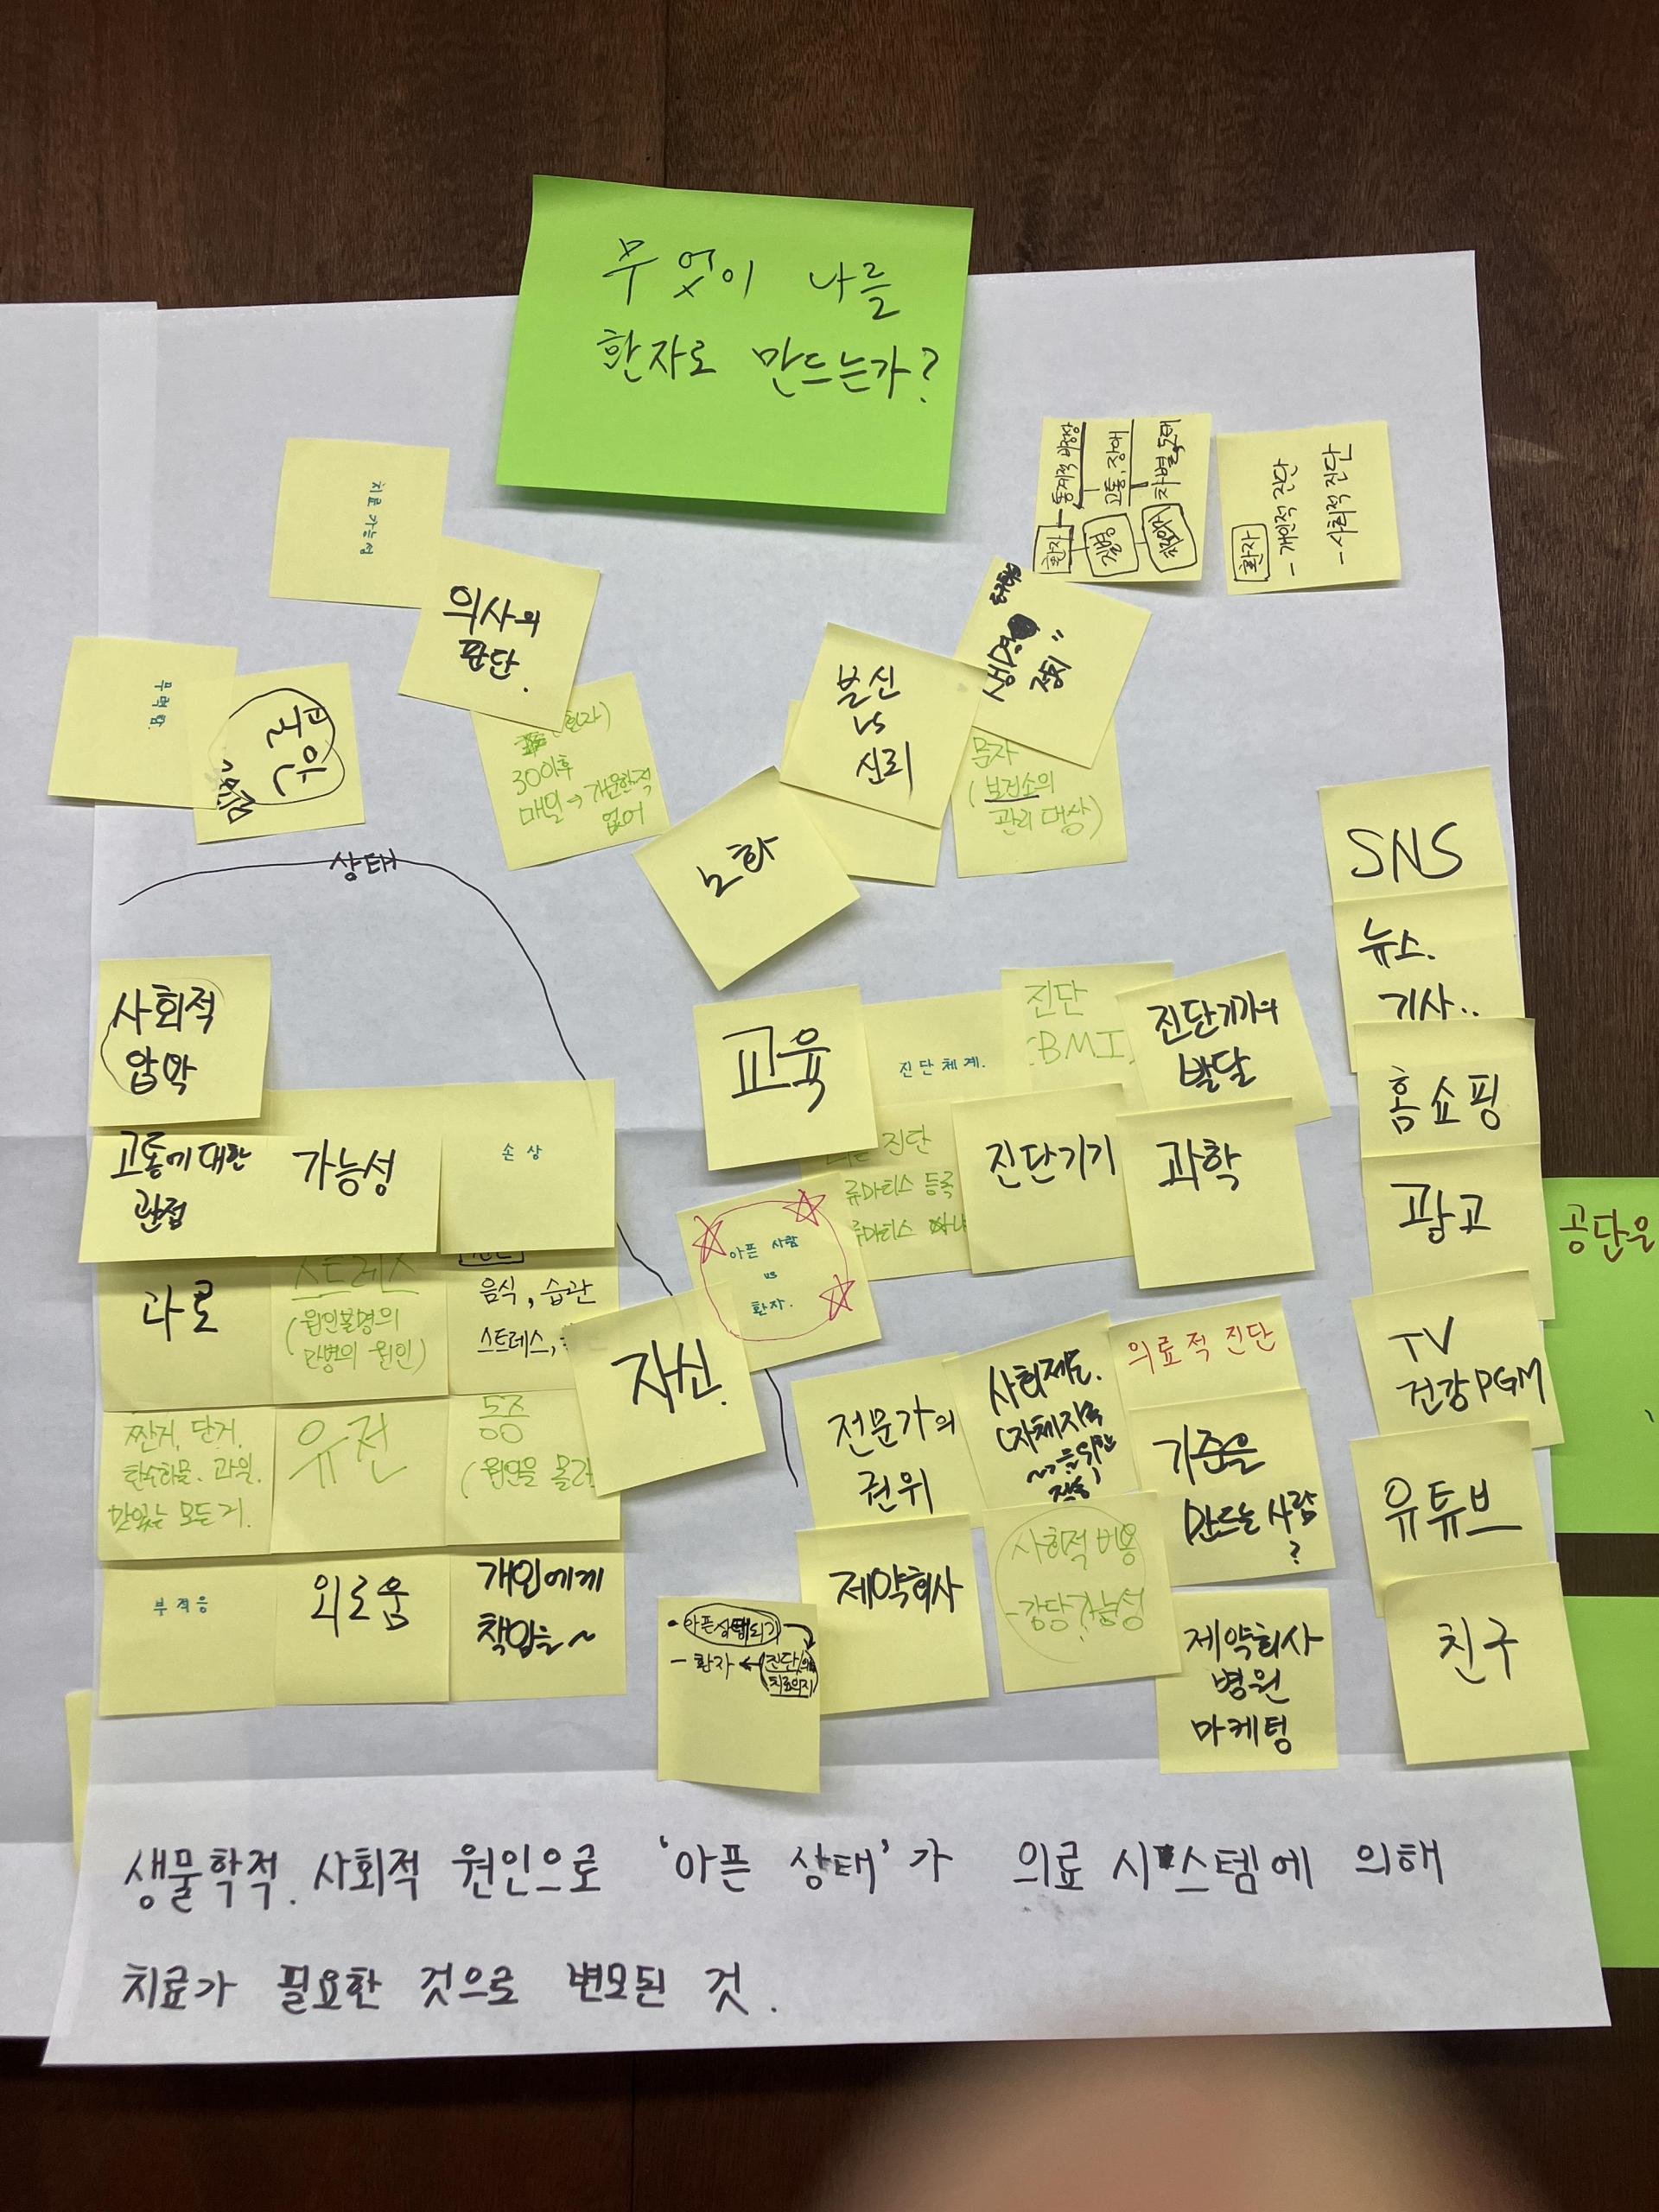 무엇이 나를
환자로 만드는가?
치료가능성
의사의
판단.
환자
통계적 비정상
질병
고통, 장애
차별, 도태
환자
- 개인적 진단
- 사회적 진단
무력함.
30이후
매일 → 개운한적
없어
불신
vs
신뢰
정치"
문자
(보건소의
관리 대상)
노화
상태
SNS
뉴스.
기사..
홈쇼핑
광고
TV
건강 PGM
유튜브
친구
공단은
사회적
압박
고통에 대한
관점
가능성
손상
과로
스트레스
(원인불명의
만병의 원인)
음식, 습관
스트레스,
짠거, 단거,
탄수화물. 과일.
맛있는 모든거.
유전
통증
(원인을 몰라
부적응
외로움
개인에게
책임을~
교육
진단체계.
진단
(BMI)
진단기기의
발달
진단
류마티스 등록
류마티스
진단기기
과학
아픈 사람
vs
환자.
자신.
전문가의
권위
사회제도.
의료적 진단
기준을
만드는 사람
?
제약회사
사회적 비용
-감당가능성
제약회사
병원
마케팅
• 아픈상태되기
- 환자 ← 진단
치료의지
생물학적. 사회적 원인으로 '아픈 상태'가 의료 시스템에 의해
치료가 필요한 것으로 변모된 것.